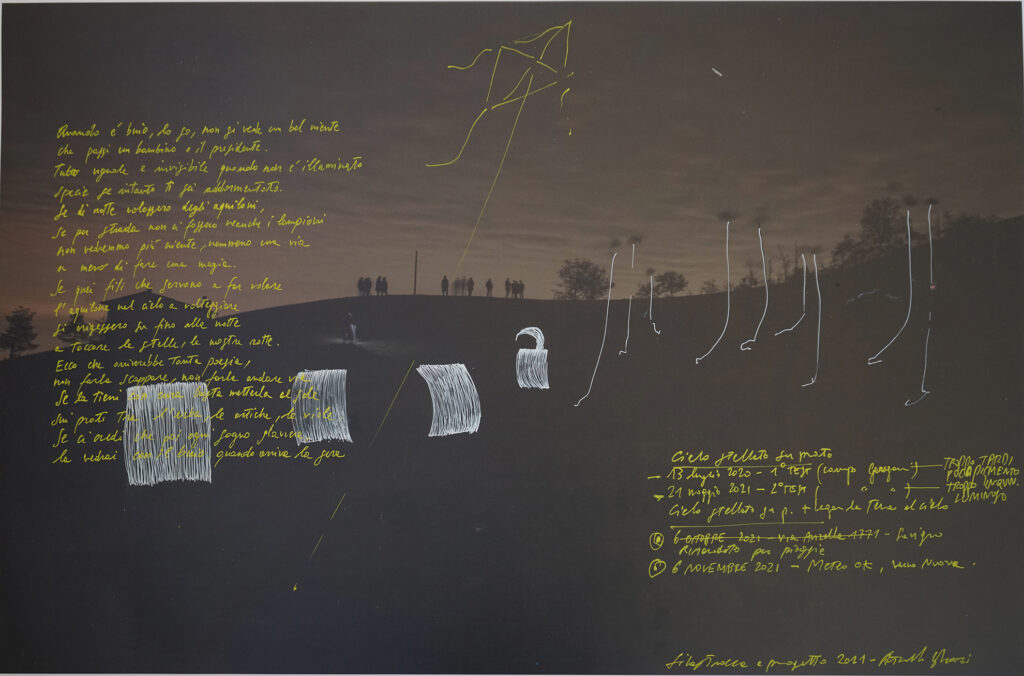 Quando è buio, lo so, non si vede un bel niente
che passi un bambino o il presidente.
Tutto uguale e invisibile quando non è illuminato
specie se intanto ti sei addormentato.
Se di notte volassero degli aquiloni,
se per strada non ci fossero neanche i lampioni
non vedremmo più niente, nemmeno una via
a meno di fare una magia.
Se quei fili che servono a far volare
l'aquilone nel cielo a volteggiare
si ergessero su fino alla notte
a toccare le stelle, le nostre rotte.
Ecco che arriverebbe tanta poesia,
non farla scappare, non farla andare via
Se la tieni basta metterla al sole
sui prati tra le ortiche, le viole
Se ci credi che poi ogni sogno s'avvera
la vedrai con il buio quando arriva la sera
Cielo stellato su prato
- 13 luglio 2020 - 1° TEST (campo — TROPPO TARDI,
POCO
- 21 maggio 2021 - 2° TEST ( " " ) — TROPPO INQUIN.
LUMINOSO
Cielo stellato su p. + legare la terra al cielo
6 OTTOBRE 2021 - via 1771 - Savigno
RIMANDATO per pioggia
6 NOVEMBRE 2021 - METEO OK, luna Nuova.
filastrocca e progetto 2021 -